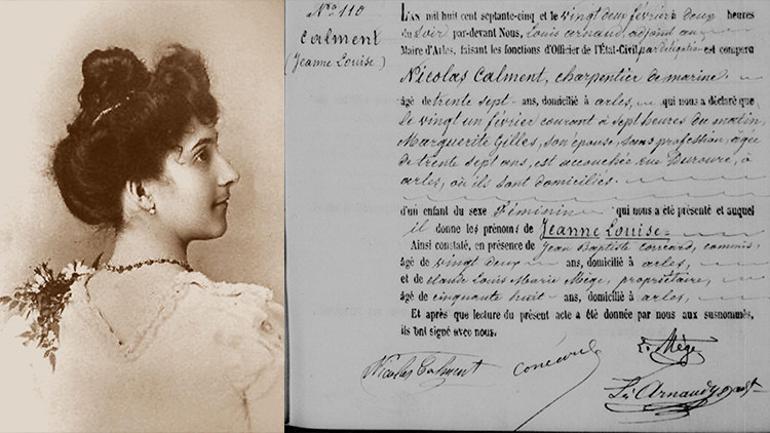 Nro 110
Calment
(Jeanne Louise)
L'AN mil huit cent septante-cinq et le vingt deux février à deux heures
du soir par-devant Nous, Louis
Maire d'Arles, faisant les fonctions d'Officier de l'État-Civil par délégation est comparu
Nicolas Calment, charpentier de marine
âgé de trente sept ans, domicilié à arles, qui nous a déclaré que
le vingt un février courant à sept heures du matin,
Marguerite Gilles, son épouse, sans profession, agée
de trente sept ans, est accouchée rue à
arles, où ils sont domiciliés.
d'un enfant du sexe féminin qui nous a été présenté et auquel
il donne les prénoms de Jeanne Louise
Ainsi constaté, en présence de Jean Baptiste commis,
âgé de vingt deux ans, domicilié à arles,
et de claude Louis Marie Mège, propriétaire,
âgé de cinquante huit ans, domicilié à arles,
Et après que lecture du présent acte a été donnée par nous aux susnommés,
ils ont signé avec nous.
Mège
Nicolas Calment